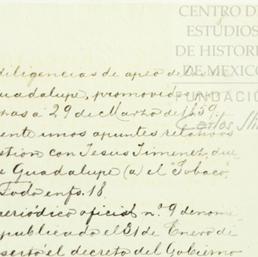 CENTRO DE
ESTUDIOS
DE HISTORIA
DE MEXICO
FUNDACIÓ
Carlos Sli
diligencias de apeo de
uadalupe, promovi
ras a 29 de Marzo de 1859
ente unos apuntes relativos
stion con Jesus Jimenez, due
e Guadalupe (a) el Tobaco,
Todo en fs. 18.
periódico oficial nº 9 de
publicado el 31 de Enero de
sertó el decreto del Gobierno